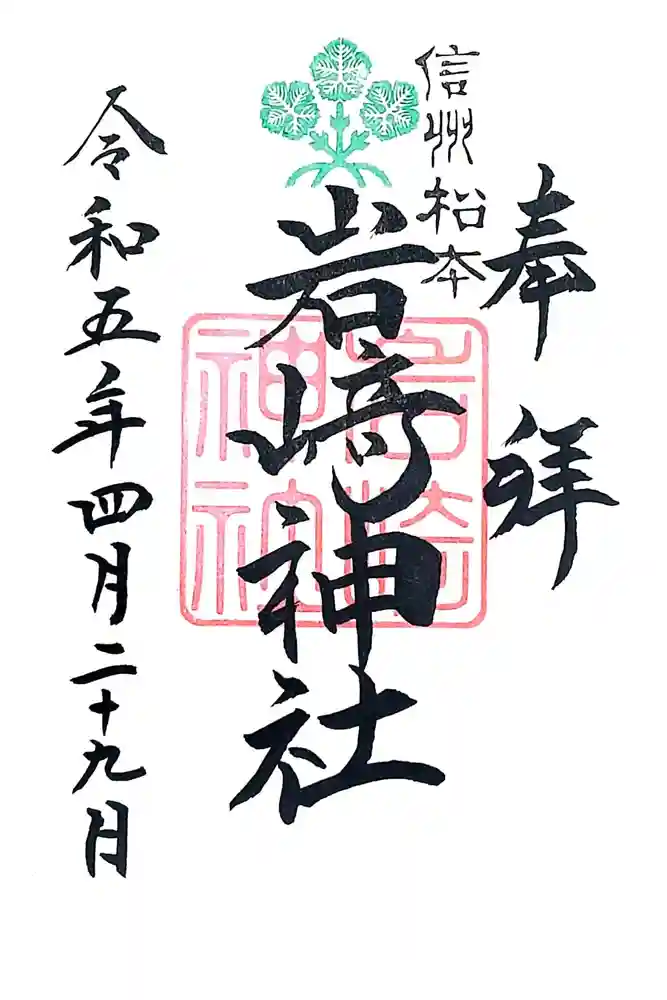 奉拝
信州松本
岩崎神社
岩崎神社
令和五年四月二十九月